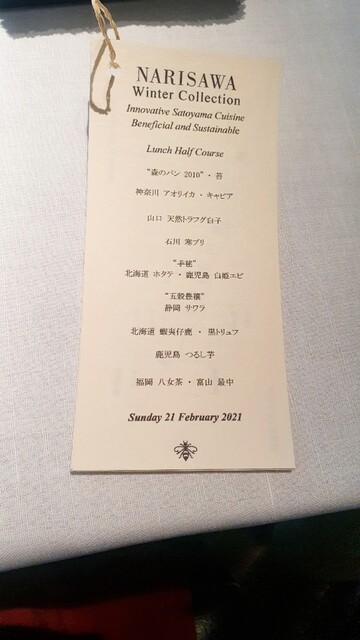 NARISAWA
Winter Collection
Innovative Satoyama Cuisine
Beneficial and Sustainable
Lunch Half Course
“森のパン 2010”・苔
神奈川 アオリイカ ・ キャビア
山口 天然トラフグ白子
石川 寒ブリ
北海道 ホタテ ・ 鹿児島 白姫エビ
“五穀豊穣”
静岡 サワラ
北海道 蝦夷仔鹿 ・ 黒トリュフ
鹿児島 つるし芋
福岡 八女茶 ・ 富山 最中
Sunday 21 February 2021